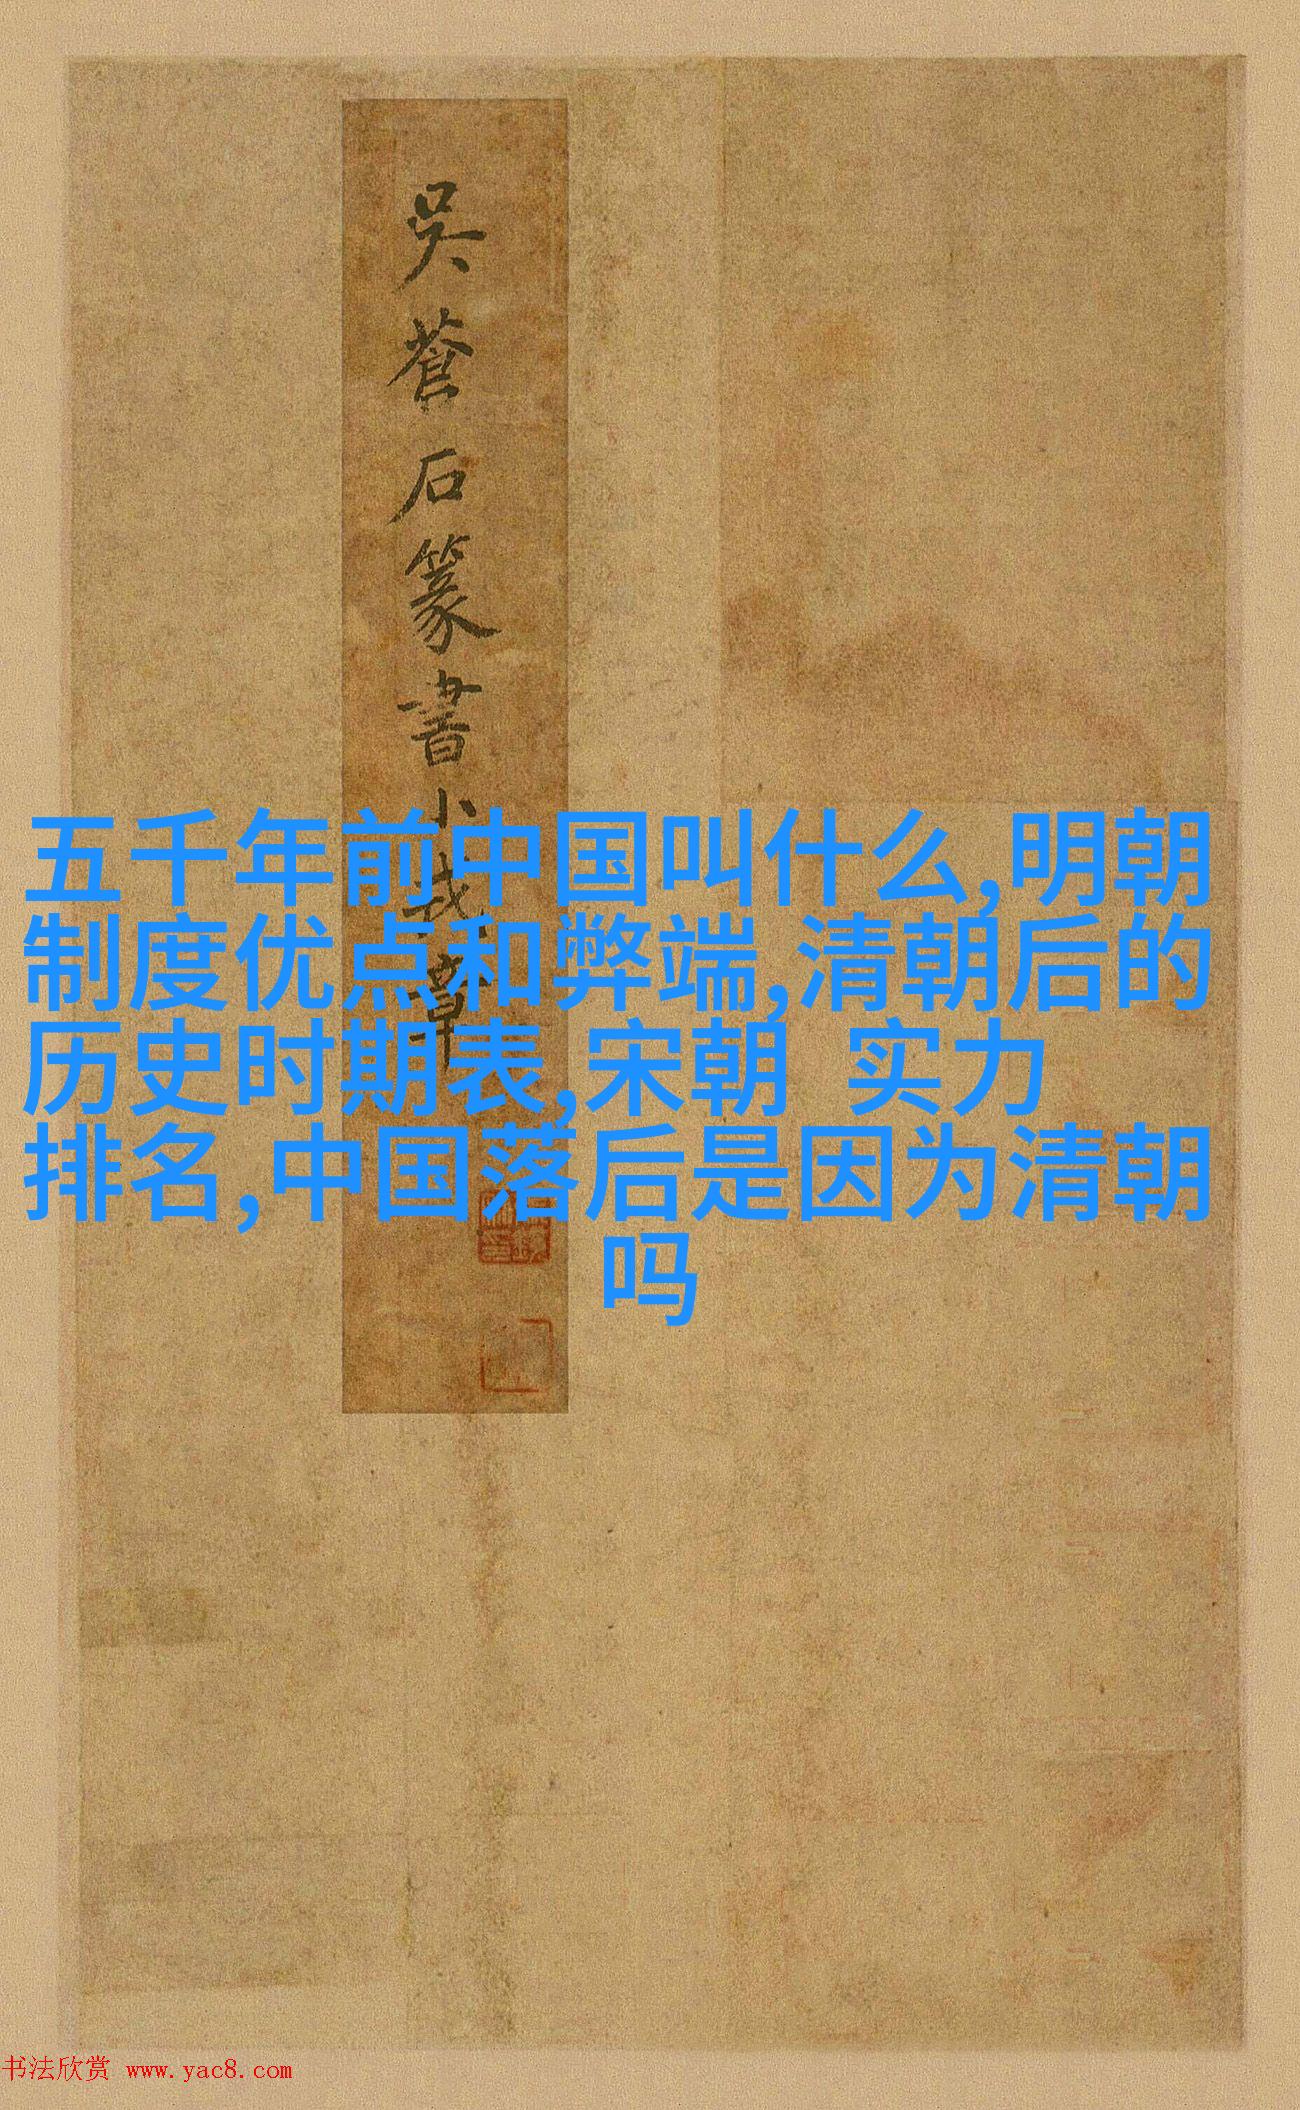 吳蒼石篆書小戎章
五千年前中国叫什么,明朝
制度优点和弊端,清朝后的
历史时期表,宋朝 实力
排名,中国落后是因为清朝
吗
书法欣赏 www.yac8.com